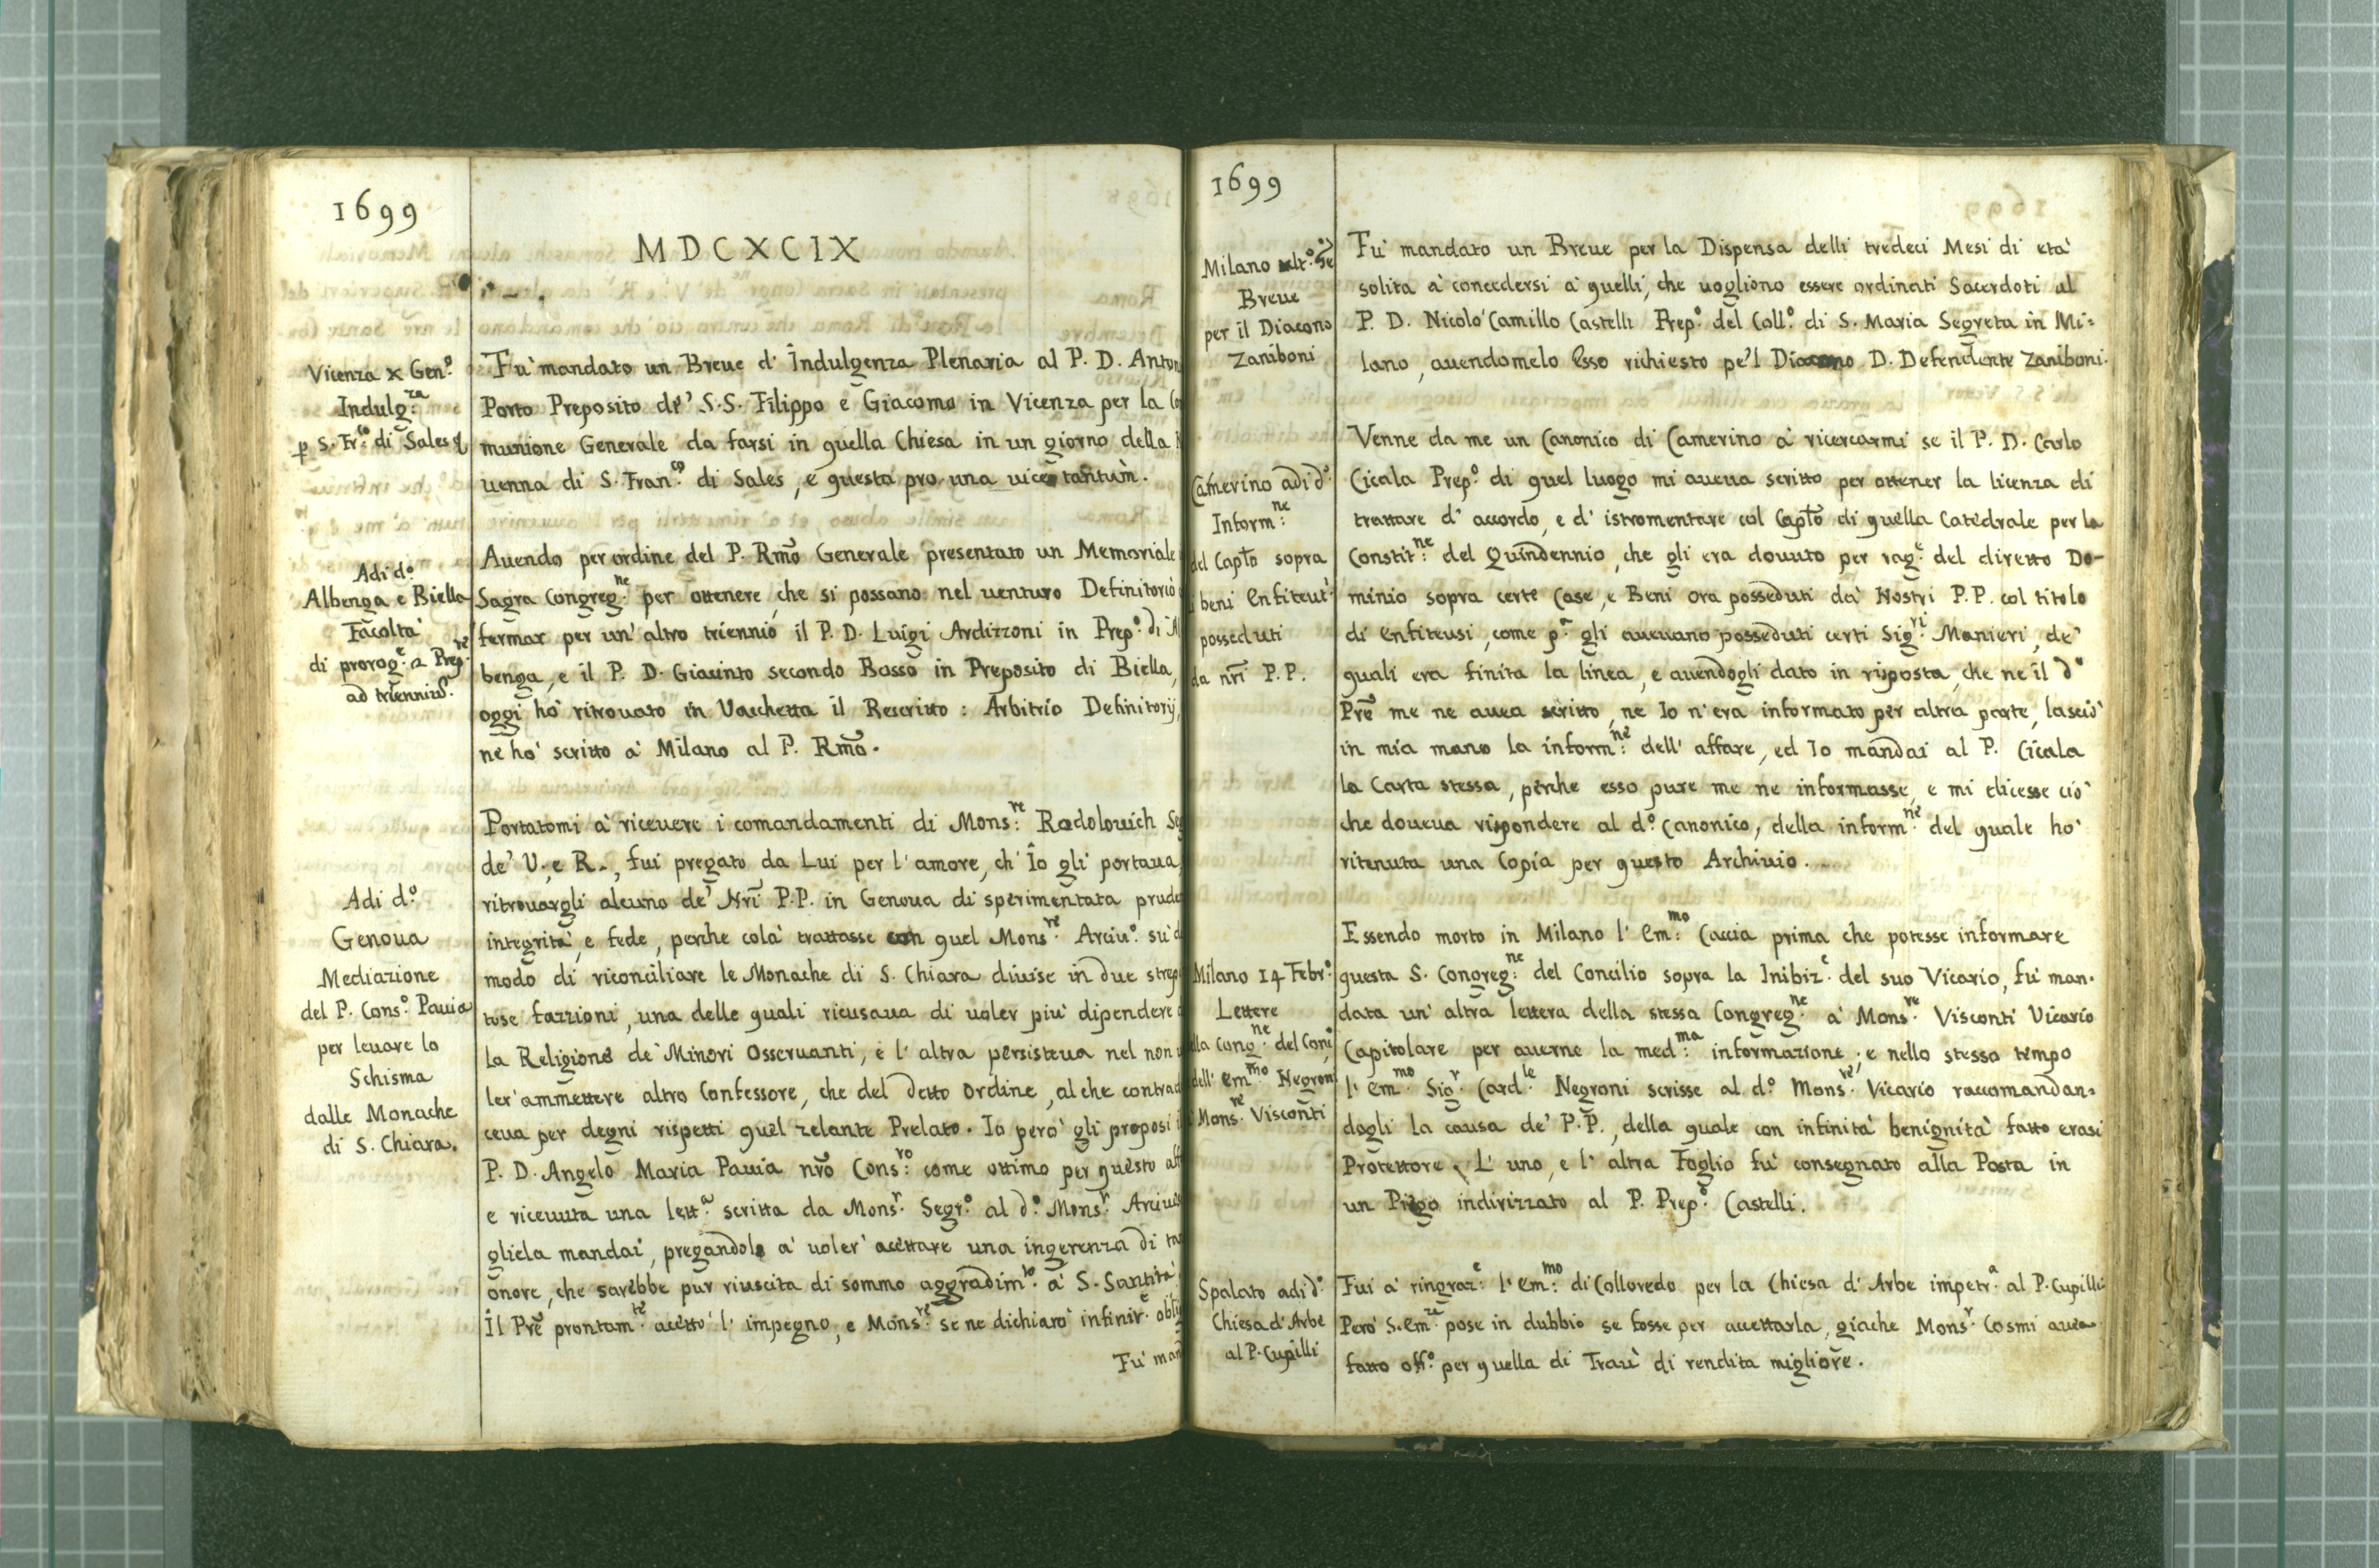 1699
MDCXCIX
Vicenza x Gen.º
Indulg.za
p S. Fr.co di Sales
Fù mandato un Breue d' Indulgenza Plenaria al P. D. Anton
Porto Preposito de' S.S. Filippo e Giacomo in Vicenza per la Co
munione Generale da farsi in quella Chiesa in un giorno della
uenna di S. Fran.co di Sales, e questa pro una vice tantùm.
Adi d.º
Albenga e Biella
Facoltà
di prorog.e a Prep.ti
ad trienniũ.
Auendo per ordine del P. Rmõ Generale presentato un Memoriale
Sagra Congreg.ne per ottenere, che si possano nel uenturo Definitorio
fermar per un' altro triennio il P. D. Luigi Ardizzoni in Prep.º di Al
benga, e il P. D. Giacinto secondo Basso in Preposito di Biella,
oggi hò ritrouato in Vacchetta il Rescritto: Arbitrio Definitorij,
ne hò scritto à Milano al P. Rmõ.
Adi d.º
Genoua
Mediazione
del P. Cons.º Pauia
per leuare lo
Schisma
dalle Monache
di S. Chiara.
Portatomi à riceuere i comandamenti di Mons.re Radolouich Seg
de' V. e R., fui pregato da Lui per l' amore, ch' Io gli portaua,
ritrouargli alcuno de' Nrĩ P.P. in Genoua di sperimentata prude
integrità, e fede, perche colà trattasse con quel Mons.re Arciu.º su'l
modo di riconciliare le Monache di S. Chiara diuise in due strepi
tose fazzioni, una delle quali ricusaua di uoler più dipendere d
la Religione de' Minori Osseruanti, e l' altra persisteua nel non u
ler' ammettere altro Confessore, che del detto Ordine, al che contrad
ceua per degni rispetti quel zelante Prelato. Io però gli proposi il
P. D. Angelo Maria Pauia nrõ Cons.ro come ottimo per questo aff
e riceuuta una lett.a scritta da Mons.r Segr.º al d.º Mons.r Arciues
gliela mandai, pregandolo a' uoler' accettare una ingerenza di ta
onore, che sarebbe pur riuscita di sommo aggradim.to à S. Santità
Il Prẽ prontam.te accettò l' impegno, e Mons.re se ne dichiarò infinit.e obli
Fù man
1699
Milano
Breue
per il Diacono
Zaniboni
Fù mandato un Breue per la Dispensa delli tredeci Mesi di età
solita à concedersi à quelli, che uogliono essere ordinati Sacerdoti al
P. D. Nicolò Camillo Castelli Prep.º del Coll.º di S. Maria Segreta in Mi=
lano, auendomelo Esso richiesto pe'l Diacono D. Defendente Zaniboni.
Camerino adi d.º
Inform.ne
del Captõ sopra
i beni Enfiteut.
posseduti
da nrĩ P.P.
Venne da me un Canonico di Camerino à ricercarmi se il P. D. Carlo
Cicala Prep.º di quel luogo mi aueua scritto per ottener la licenza di
trattare d' accordo, e d' istromentare col Captõ di quella Catedrale per la
Constit.ne del Quindennio, che gli era douuto per rag.e del diretto Do-
minio sopra certe Case, e Beni ora posseduti da' Nostri P.P. col titolo
di Enfiteusi, come p.a gli aueuano posseduti certi Sig.ri Manieri, de'
quali era finita la linea, e auendogli dato in risposta, che ne il d.º
Prẽ me ne auea scritto, ne Io n'era informato per altra parte, lasciò
in mia mano la inform.ne dell' affare, ed Io mandai al P. Cicala
la Carta stessa, perche esso pure me ne informasse, e mi dicesse ciò
che doueua rispondere al d.º Canonico, della inform.ne del quale hò
ritenuta una Copia per questo Archiuio.
Milano 14 Febr.º
Lettere
lla Cong.ne del Conc.º
dell' Em.mo Negroni
Mons.re Visconti
Essendo morto in Milano l' Em.mo Caccia prima che potesse informare
questa S. Congreg.ne del Concilio sopra la Inibiz.e del suo Vicario, fù man=
data un' altra lettera della stessa Congreg.ne à Mons.re Visconti Vicario
Capitolare per auerne la med.ma informazione; e nello stesso tempo
l' Em.mo Sig.r Card.le Negroni scrisse al d.º Mons.re Vicario raccomandan=
dogli la causa de' P.P., della quale con infinità benignità fatto erasi
Protettore. L' uno, e l' altra Foglio fù consegnato alla Posta in
un Piego indirizzato al P. Prep.º Castelli.
Spalato adi d.º
Chiesa d' Arbe
al P. Cupilli
Fui à ringraz.e l' Em.mo di Colloredo per la Chiesa d' Arbe impetr.a al P. Cupilli
Però S. Em.za pose in dubbio se fosse per accettarla, giache Mons.r Cosmi auea
fatto off.º per quella di Traù di rendita migliore.